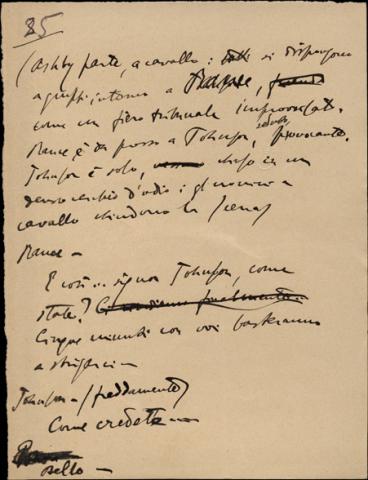 85
(Ashby parte, a cavallo: tutti si dispongono
a gruppi intorno a Rance,
come un fiero tribunale improvvisato.
Rance è di passo a Johnson, seduto, provocante.
Johnson è solo, chiuso in un
denso cerchio d'odio; gli uomini a
cavallo chiudono la scena)
Rance —
E così... signor Johnson, come
state? Ci vediamo finalmente...
Cinque minuti con voi basteranno
a strigarci —
Johnson — (freddamente)
Come credete —
Bello —